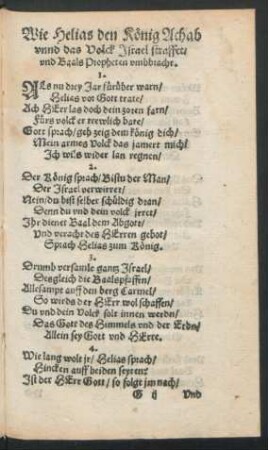 Wie Helias den König Achab
vnnd das Volck Israel straffet/
vnd Baals Propheten vmbbracht.
1.
ALs nu drey Jar fürüber warn/
Helias vor Gott trate/
Ach HErr las doch dein zoren farn/
Fürs volck er trewlich bate/
Gott sprach/ geh zeig dem könig dich/
Mein armes Volck das jamert mich/
Ich wils wider lan regnen/
2.
Der König sprach/ Bistu der Man/
Der Israel verwirret/
Nein/ du bist selber schüldig dran/
Denn du vnd dein volck jrret/
Ihr dienet Baal dem Abgott/
Vnd veracht des HErren gebot/
Sprach Helias zum König.
3.
Drumb versamle gantz Israel/
Desgleich die Baalspfaffen/
Allesampt auff den berg Carmel/
So wirds der HErr wol schaffen/
Du vnd dein Volck solt innen werdn/
Das Gott des Himmels vnd der Erdn/
Allein sey Gott vnd HErre.
4.
Wie lang wolt jr/ Helias sprach/
Hincken auff beiden seyten:
Ist der HErr Gott/ so folgt jm nach/
G ij Vnd